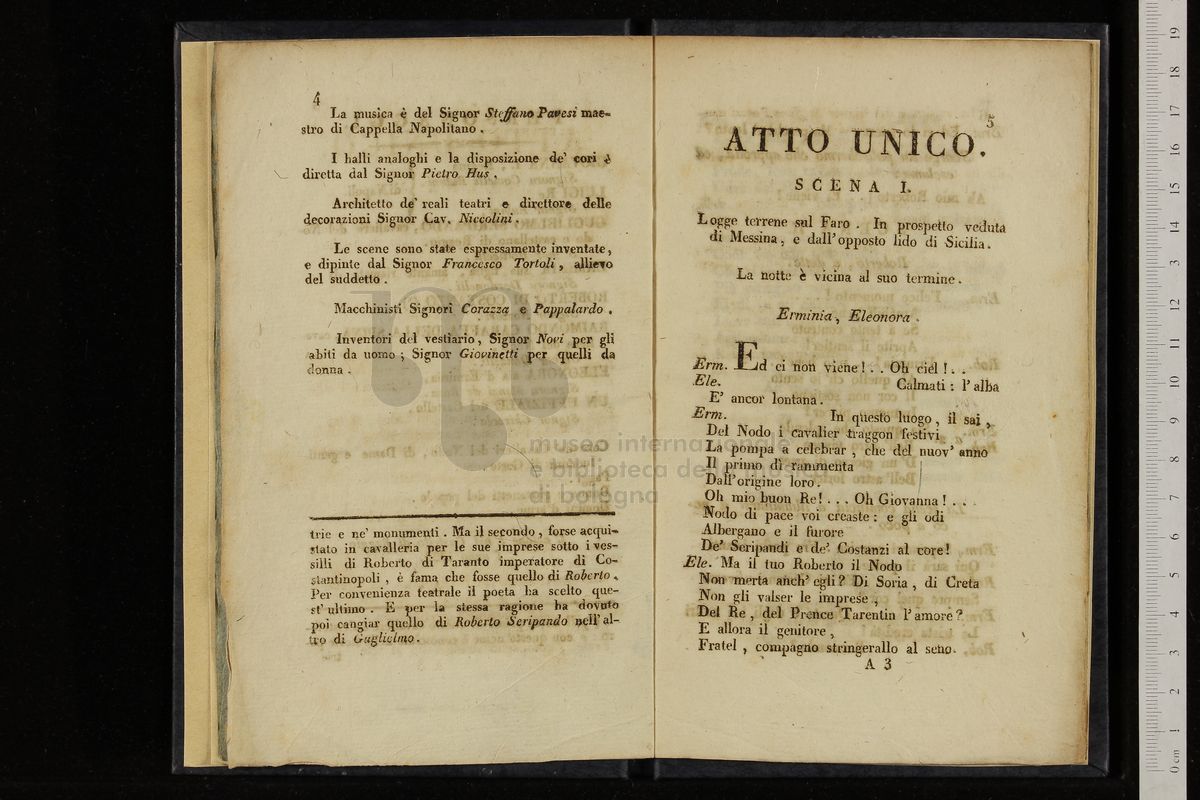 4
La musica è del Signor Steffano Pavesi mae-
stro di Cappella Napolitano .
I balli analoghi e la disposizione de' cori è
diretta dal Signor Pietro Hus .
Architetto de' reali teatri e direttore delle
decorazioni Signor Cav. Niccolini .
Le scene sono state espressamente inventate ,
e dipinte dal Signor Francesco Tortoli , allievo
del suddetto .
Macchinisti Signori Corazza e Pappalardo .
Inventori del vestiario , Signor Novi per gli
abiti da uomo ; Signor Giovinetti per quelli da
donna .
trie e ne' monumenti . Ma il secondo , forse acqui-
stato in cavalleria per le sue imprese sotto i ves-
silli di Roberto di Taranto imperatore di Co-
stantinopoli , è fama che fosse quello di Roberto .
Per convenienza teatrale il poeta ha scelto que-
st' ultimo . E per la stessa ragione ha dovuto
poi cangiar quello di Roberto Seripando nell' al-
tro di Guglielmo .
5
ATTO UNICO.
SCENA I.
Logge terrene sul Faro . In prospetto veduta
di Messina , e dall' opposto lido di Sicilia .
La notte è vicina al suo termine .
Erminia , Eleonora .
Erm. Ed ei non viene ! . . Oh ciel ! . .
Ele. Calmati : l' alba
E' ancor lontana .
Erm. In questo luogo , il sai ,
Del Nodo i cavalier traggon festivi
La pompa a celebrar , che del nuov' anno
Il primo dì rammenta
Dall' origine loro .
Oh mio buon Re ! . . . Oh Giovanna ! . . .
Nodo di pace voi creaste : e gli odi
Albergano e il furore
De' Seripandi e de' Costanzi al core !
Ele. Ma il tuo Roberto il Nodo
Non merta anch' egli ? Di Soria , di Creta
Non gli valser le imprese ,
Del Re , del Prence Tarentin l' amore ?
E allora il genitore ,
Fratel , compagno stringerallo al seno .
A 3
museo internazionale
e biblioteca della musica
di bologna
0 cm 1 2 3 4 5 6 7 8 9 10 11 12 13 14 15 16 17 18 19